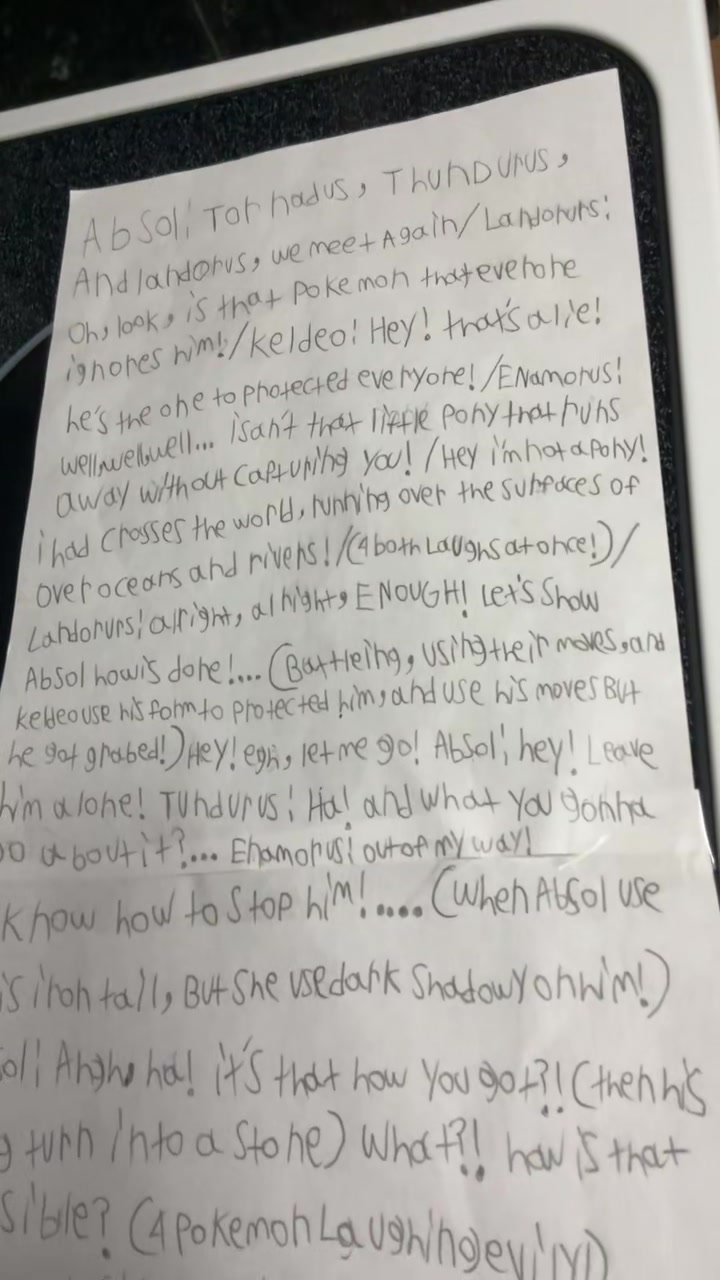 Absol; Tornadus, Thundurus,
And landorus, we meet Again/Landorurs:
Oh, look, is that pokemon that everone
ignores him!/keldeo! Hey! that's a lie!
he's the one to protected everyone!/ENamorus!
well,well,well... isan't that little pony that runs
away without capturing you!/Hey i'm not a pony!
i had crosses the world, running over the surfaces of
over oceans and rivers!/(4 both Laughs at once!)/
Landorurs! alright, alright, ENOUGH! Let's Show
Absol how is done!....(Battleing, using their moves, and
keldeo use his form to protected him, and use his moves But
he got grabed!) Hey! egh, let me go! Absol; hey! Leave
him alone! Tundurus! Ha! and what you gonna
about it?... Enamorus! out of my way!
know how to Stop him!.....(When Absol use
iron tall, But She use dark Shadowy on him!)
Arghs ha! it's that how You got?!(then his
turn into a Stone) What?!! how is that
(4 Pokemon Laughing